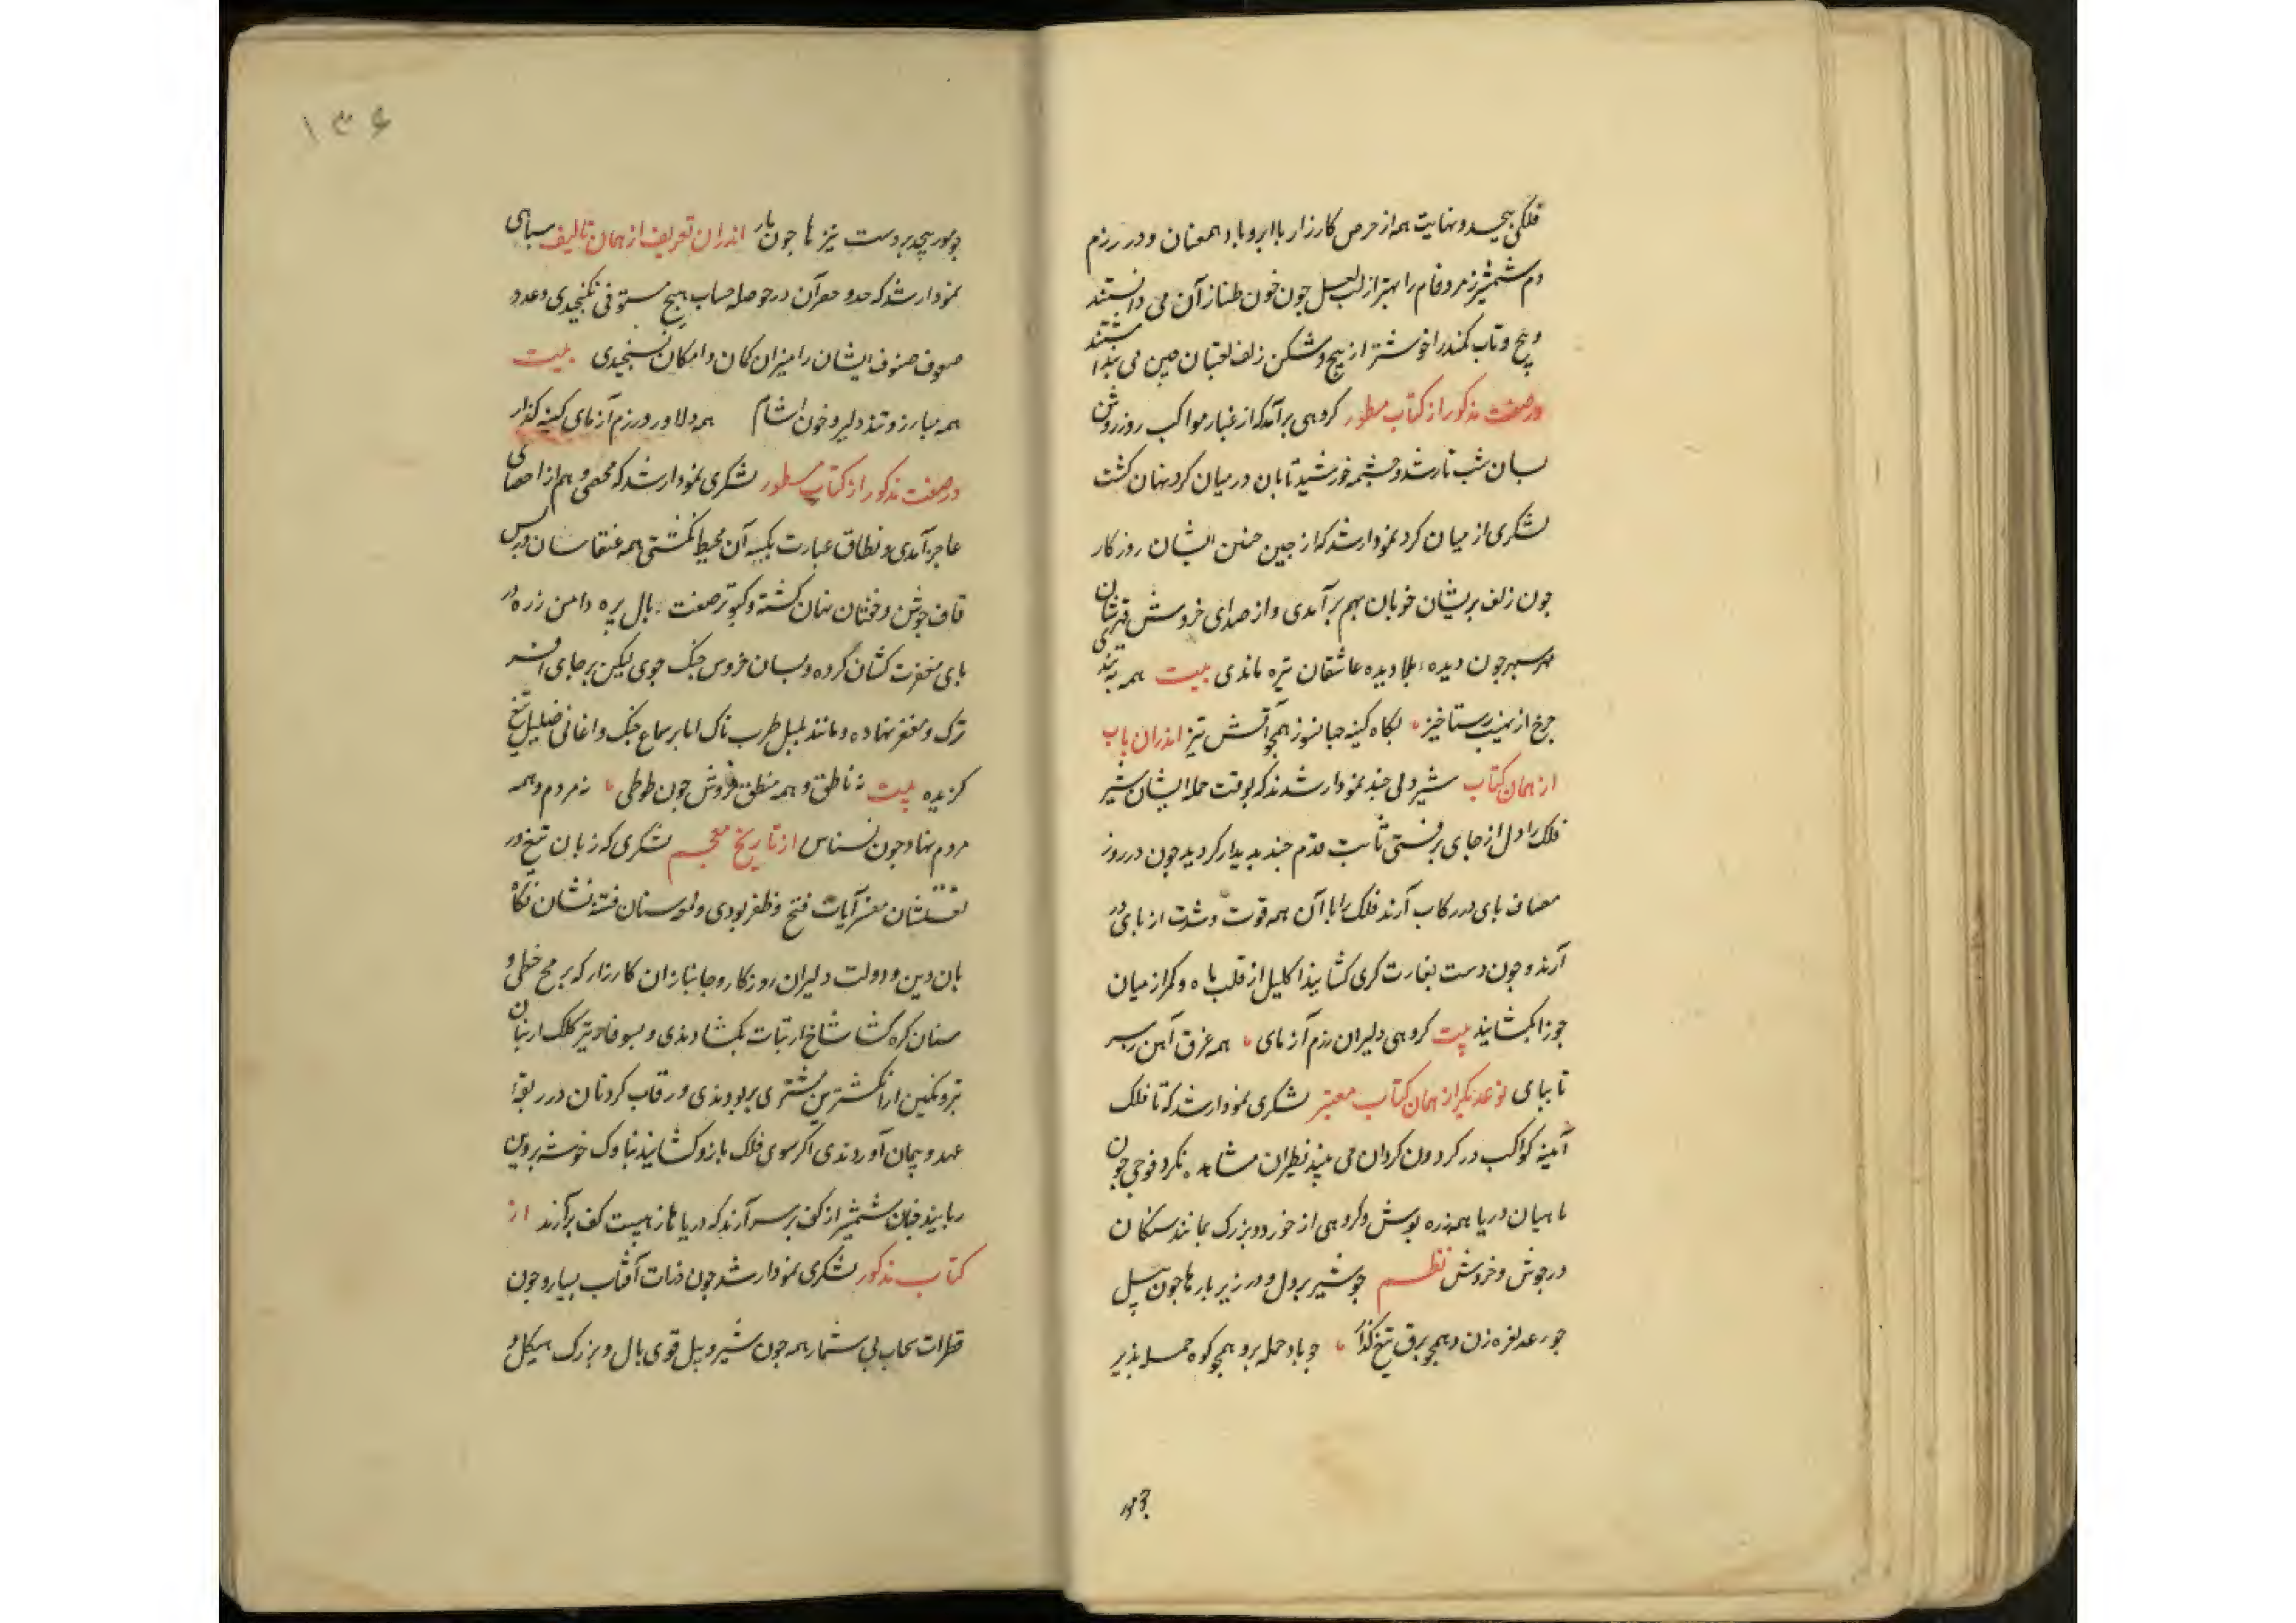 فلکی پیچید و نهایت همه از حرص کارزار با ابر و باد همعنان و در رزم
دم شمشیر زمرد فام را بهتر از لب لعل چون خون طناز آن می دانستند
و پیچ و تاب کمند را خوشتر از پیچ و شکن زلف لعبتان چین می پنداشتند
در صفت مذکور از کتاب مسطور کروهی برآمد که از غبار مواکب روز روشن
بسان شب تار شد و چشمه خورشید تابان در میان کرد نهان کشت
لشکری از میان کرد نمودار شد که از چین جبین ایشان روزکار
چون زلف پریشان خوبان بهم برآمدی و از صدای خروش
سپهر چون دیده عاشقان تیره ماندی بیت همه به تندی
چرخ از نهیب رستاخیز لکاه کینه جهانسوز همچو آتش تیز اندران باب
از همان کتاب شیر دلی چند نمودار شدند که بوقت حمله ایشان شیر
فلک را دل از جای برفتی ثابت قدم چند پدیدار کردید چون در روز
مصاف پای در رکاب آرند فلک را با آن همه قوت و شدت از پای در
آرند و چون دست بغارت کری کشایند اکلیل از قلب ماه و کمر از میان
جوزا بکشایند بیت کروهی دلیران رزم آزمای همه غرق آهن ز سر
تا بپای نوع دیکر از همان کتاب معتبر لشکری نمودار شد که تا فلک
آینه کواکب در کردون کردان می بیند نظیر آن مشاهده نکرد فوجی چون
ماهیان دریا همه زره پوش و کروهی از خورد و بزرک بمانند سکان
در جوش و خروش نظم چو شیر پر دل و در زیر بارها چون پیل
چو رعد نعره زن و همچو برق تیغ کذار چو باد حمله بر و همچو کوه حمله پذیر
چو مور
۱۳۶
چو مور پیچد بر دست نیزها چون مار اندران تعریف از همان تالیف سپاهی
نمودار شد که حد و حصر آن در حوصله حساب هیچ مستوفی نکنجیدی و عدد
صفوف صنوف ایشان را میزان کمان و امکان نسنجیدی بیت
همه مبارز و تند و دلیر و خون آشام همه دلاور و رزم آزمای کینه کذار
در صفت مذکور از کتاب مسطور لشکری نمودار شد که محصی وهم از احصای
عاجز آمدی و نطاق عبارت بکیسه آن محیط نکشتی همه عنقا سان در پس
قاف جوشن و خفتان نهان کشته و کبوتر صفت بال پره دامن زره در
پای مغفرت کشان کرده و بسان خروس جنک جوی لیکن بر جای افسر
ترک و مغفر نهاده و مانند بلبل طرب ناک اما بر سماع جنک و اغانی صلیل تیغ
کزیده بیت نه ناطق و همه منطق فروش چون طوطی نه مردم و همه
مردم نهاد چون نسناس از تاریخ معجم لشکری که زبان تیغ در
مفسر آیات فتح و ظفر بودی و سنان فتنه نشان نکاه
بان دین و دولت دلیران روزکار و جانبازان کارزار که برمح خطی و
سنان کره کشا شاخ از نبات بکشادندی و بسوفار تیر کلک از بنان
تیر و نکین از انکشترین مشتری بربودندی و رقاب کردنان در ربقه
عهد و پیمان آوردندی اکر سوی فلک بازو کشایند بناوک خوشه پروین
ربایند چنان شمشیر از کف بر سر آرند که دریاها ز هیبت کف برآرند از
کتاب مذکور لشکری نمودار شد چون ذرات آفتاب بسیار و چون
قطرات سحاب بی شمار همه چون شیر و پیل قوی بال و بزرک هیکل و